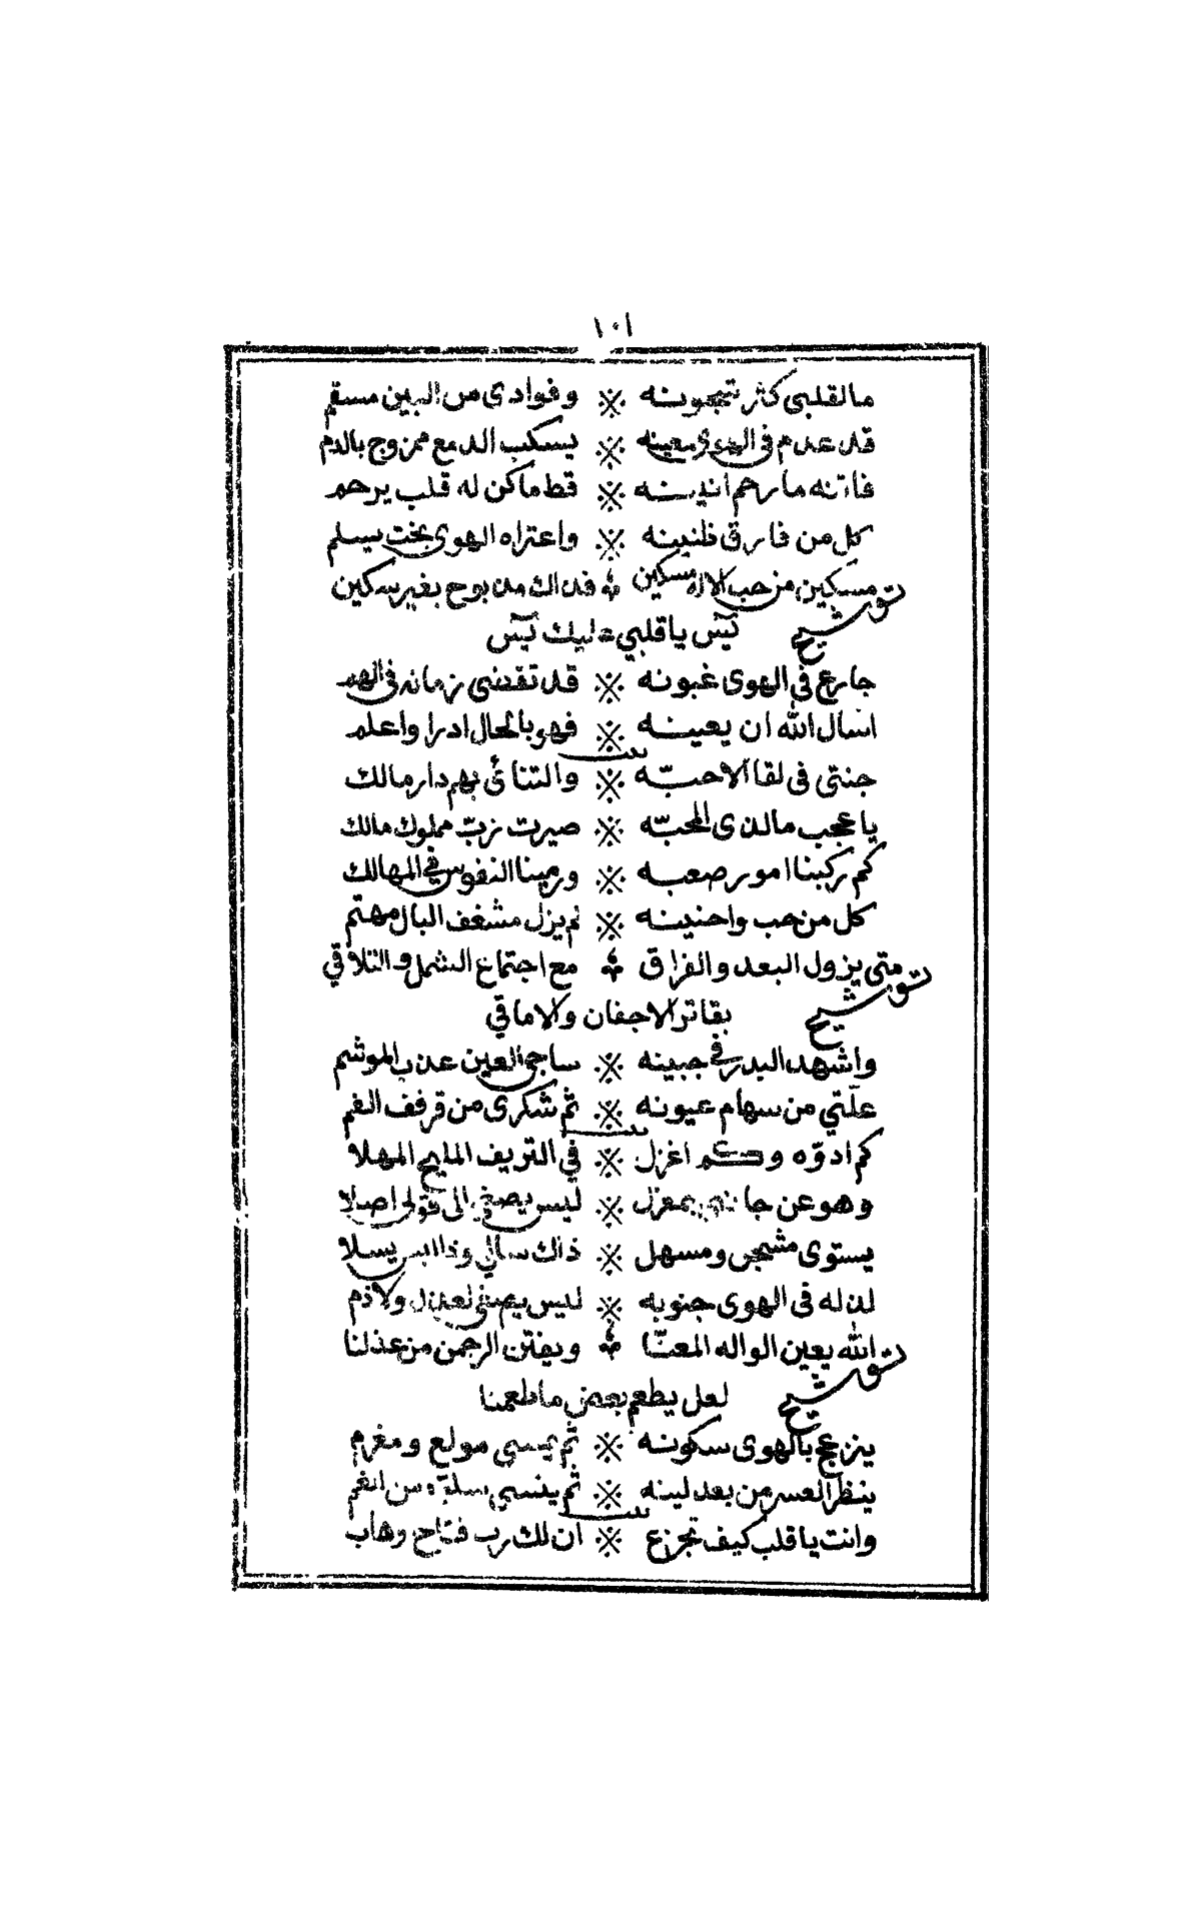 ١٠١
مالقلبي كثر شجونه ※ وفوادى من البين مسقم
قد عدم فى الهوى معينه ※ يسكب الدمع ممزوج بالدم
فاتنه مارحم انينه ※ قط ماكن له قلب يرحم
كل من فارق ظنينه ※ واعتراه الهوى بخت يسلم
توشيح مسكين من حب الاله مسكين فداك من بوح بغير سكين
يّس ياقلبي عليك يّس
جارع فى الهوى غبونه ※ قد تقضى زمانه فى الهم
اسال الله ان يعينه ※ فهو بالحال ادرا واعلم
بيت
جنتى فى لقا الاحبّه ※ والتنائى بهم دار مالك
ياعجب مالذى المحبّه ※ صيرت ربّ مملوك مالك
كم ركبنا امور صعبه ※ ورمينا النفوس في المهالك
كل من حب واحنينه ※ لم يزل مشغف البال مهتم
توشيح متى يزول البعد والفراق مع اجتماع الشمل والتلاقي
بقاتر الاجفان والاماقي
واشهد البدر في جبينه ※ ساجى العين عذب الموشم
علّتي من سهام عيونه ※ ثم شكرى من قرفف الفم
بيت
كم ادوّه وكم اغزل ※ في التريف المليح المهلا
وهو عن جانبى بمعزل ※ ليس يصغي الى قولى اصلا
يستوى مشجن ومسهل ※ ذاك سالي وذا ليس يسلا
لذ له فى الهوى جنونه ※ ليس يصغى لعذل ولا ذم
توشيح الله يعين الواله المعنّا ويفتن الرحمن من عذلنا
لعل يطعم بعض ماطعمنا
ينزعج بالهوى سكونه ※ ثم يمسي مولع ومغرم
ينظر العسر من بعد لينه ※ ثم ينسي من الغم
بيت
وانت ياقلب كيف تجزع ※ ان لك رب فتاح وهاب